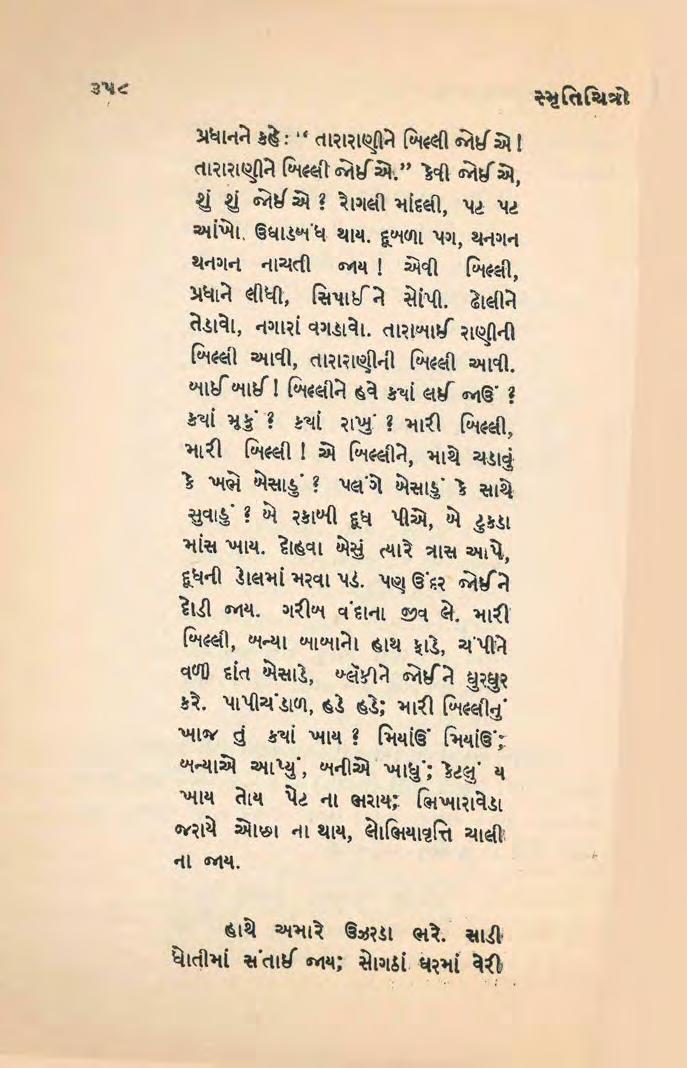 ૩૫૮
સ્મૃતિચિત્રો
પ્રધાનને કહે : “ તારારાણીને બિલ્લી જોઈ એ !
તારારાણીને બિલ્લી જોઈ એ.” કેવી જોઈ એ,
શું શું જોઈ એ ? રોગલી માંદલી, પટ પટ
આંખો. ઉઘાડબંધ થાય. દૂબળા પગ, થનગન
થનગન નાચતી જાય ! એવી બિલ્લી,
પ્રધાને લીધી, સિપાઈ ને સોંપી. ઢોલીને
તેડાવો, નગારાં વગડાવો. તારાબાઈ રાણીની
બિલ્લી આવી, તારારાણીની બિલ્લી આવી.
બાઈ બાઈ ! બિલ્લીને હવે કયાં લઈ જાઉં ?
કયાં મૂકું ? કયાં રાખું ? મારી બિલ્લી,
મારી બિલ્લી ! એ બિલ્લીને, માથે ચડાવું
કે ખભે બેસાડું ? પલંગે બેસાડું કે સાથે
સુવાડું ? બે રકાબી દૂધ પીએ, બે ટુકડા
માંસ ખાય. દોહવા બેસું ત્યારે ત્રાસ આપે,
દૂધની ડોલમાં મરવા પડે. પણ ઉંદર જોઈ ને
દોડી જાય. ગરીબ વંદાના જીવ લે. મારી
બિલ્લી, બન્યા બાબાનો હાથ ફાડે, ચંપીને
વળી દાંત બેસાડે, બ્લૅકીને જોઈ ને ઘુરઘુર
કરે. પાપીચંડાળ, હડે હડે; મારી બિલ્લીનું
ખાજ તું કયાં ખાય ? મિયાંઉં મિયાંઉં;
બન્યાએ આપ્યું, બનીએ ખાધું; કેટલું ય
ખાય તોય પેટ ના ભરાય; ભિખારાવેડા
જરાયે ઓછા ના થાય, લોભિયાવૃત્તિ ચાલી
ના જાય.
હાથે અમારે ઉઝરડા ભરે. સાડી
ધોતીમાં સંતાઈ જાય; સોગઠાં ઘરમાં વેરી